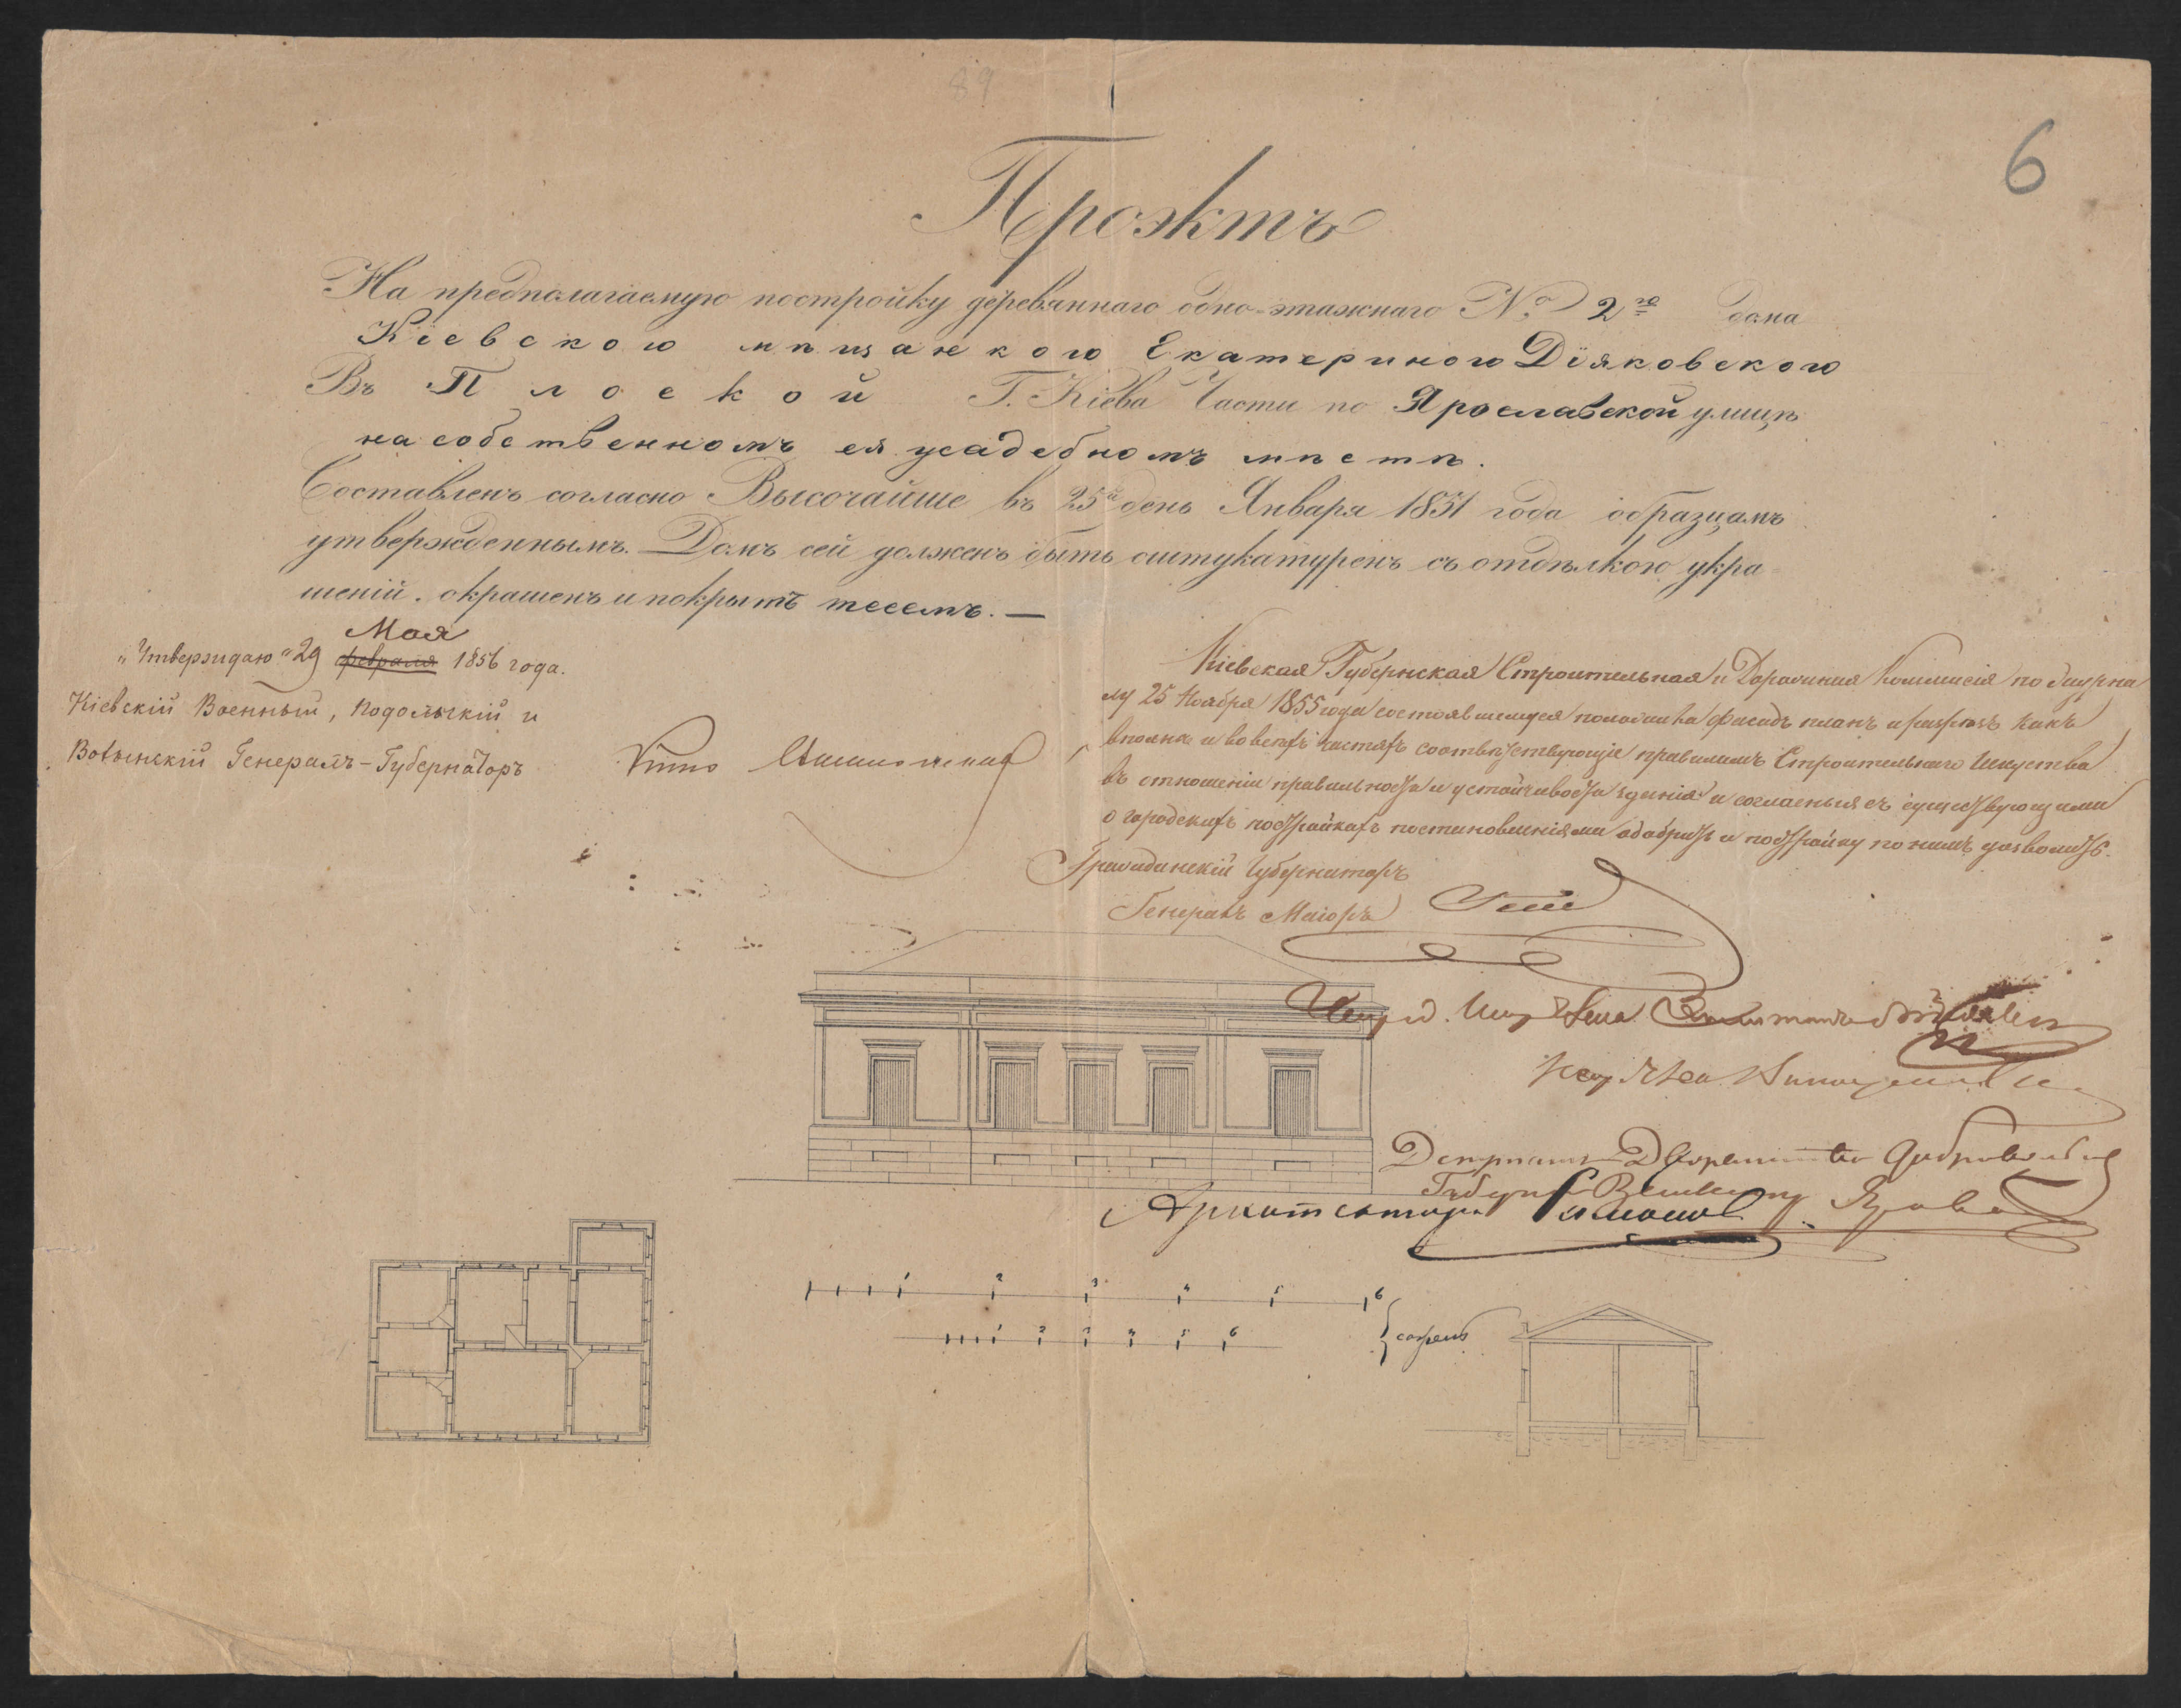 89
6
Проэктъ
На предполагаемую постройку деревяннаго одно-этажнаго № 2го дома
Кіевскою мѣщанкою Екатериною Дїяковскою
Въ Плоской Г. Кіева Части по Ярославской улицѣ
на собственномъ ея усадебномъ мѣстѣ.
Составленъ согласно Высочайше въ 25й день Января 1851 года образцамъ
утвержденнымъ. Домъ сей долженъ быть оштукатуренъ съ отдѣлкою укра
шеній. окрашенъ и покрытъ тесемъ. —
Мая
„Утверждаю" 29 февраля 1856 года.
Кіевскій Военный, Подольскій и
Волынскій Генералъ-Губернаторъ
Кіевская Губернская Строительная и Дорожная Коммисія по журна
лу 25 Ноября 1855 года состоявшемуся положила фасадъ планъ и разрезъ какъ
вполнѣ и во всехъ частяхъ соотвѣтствующіе правиламъ Строительнаго Искуства
въ отношеніи правильности и устойчивости зданія и согласныя съ существующими
о городскихъ постройкахъ постановленіями одобрить и постройку по нимъ дозволить.
Гражданскій Губернаторъ
Генералъ Маіоръ
Архитекторъ
1 2 3 4 5 6
1 2 3 4 5 6
сажень